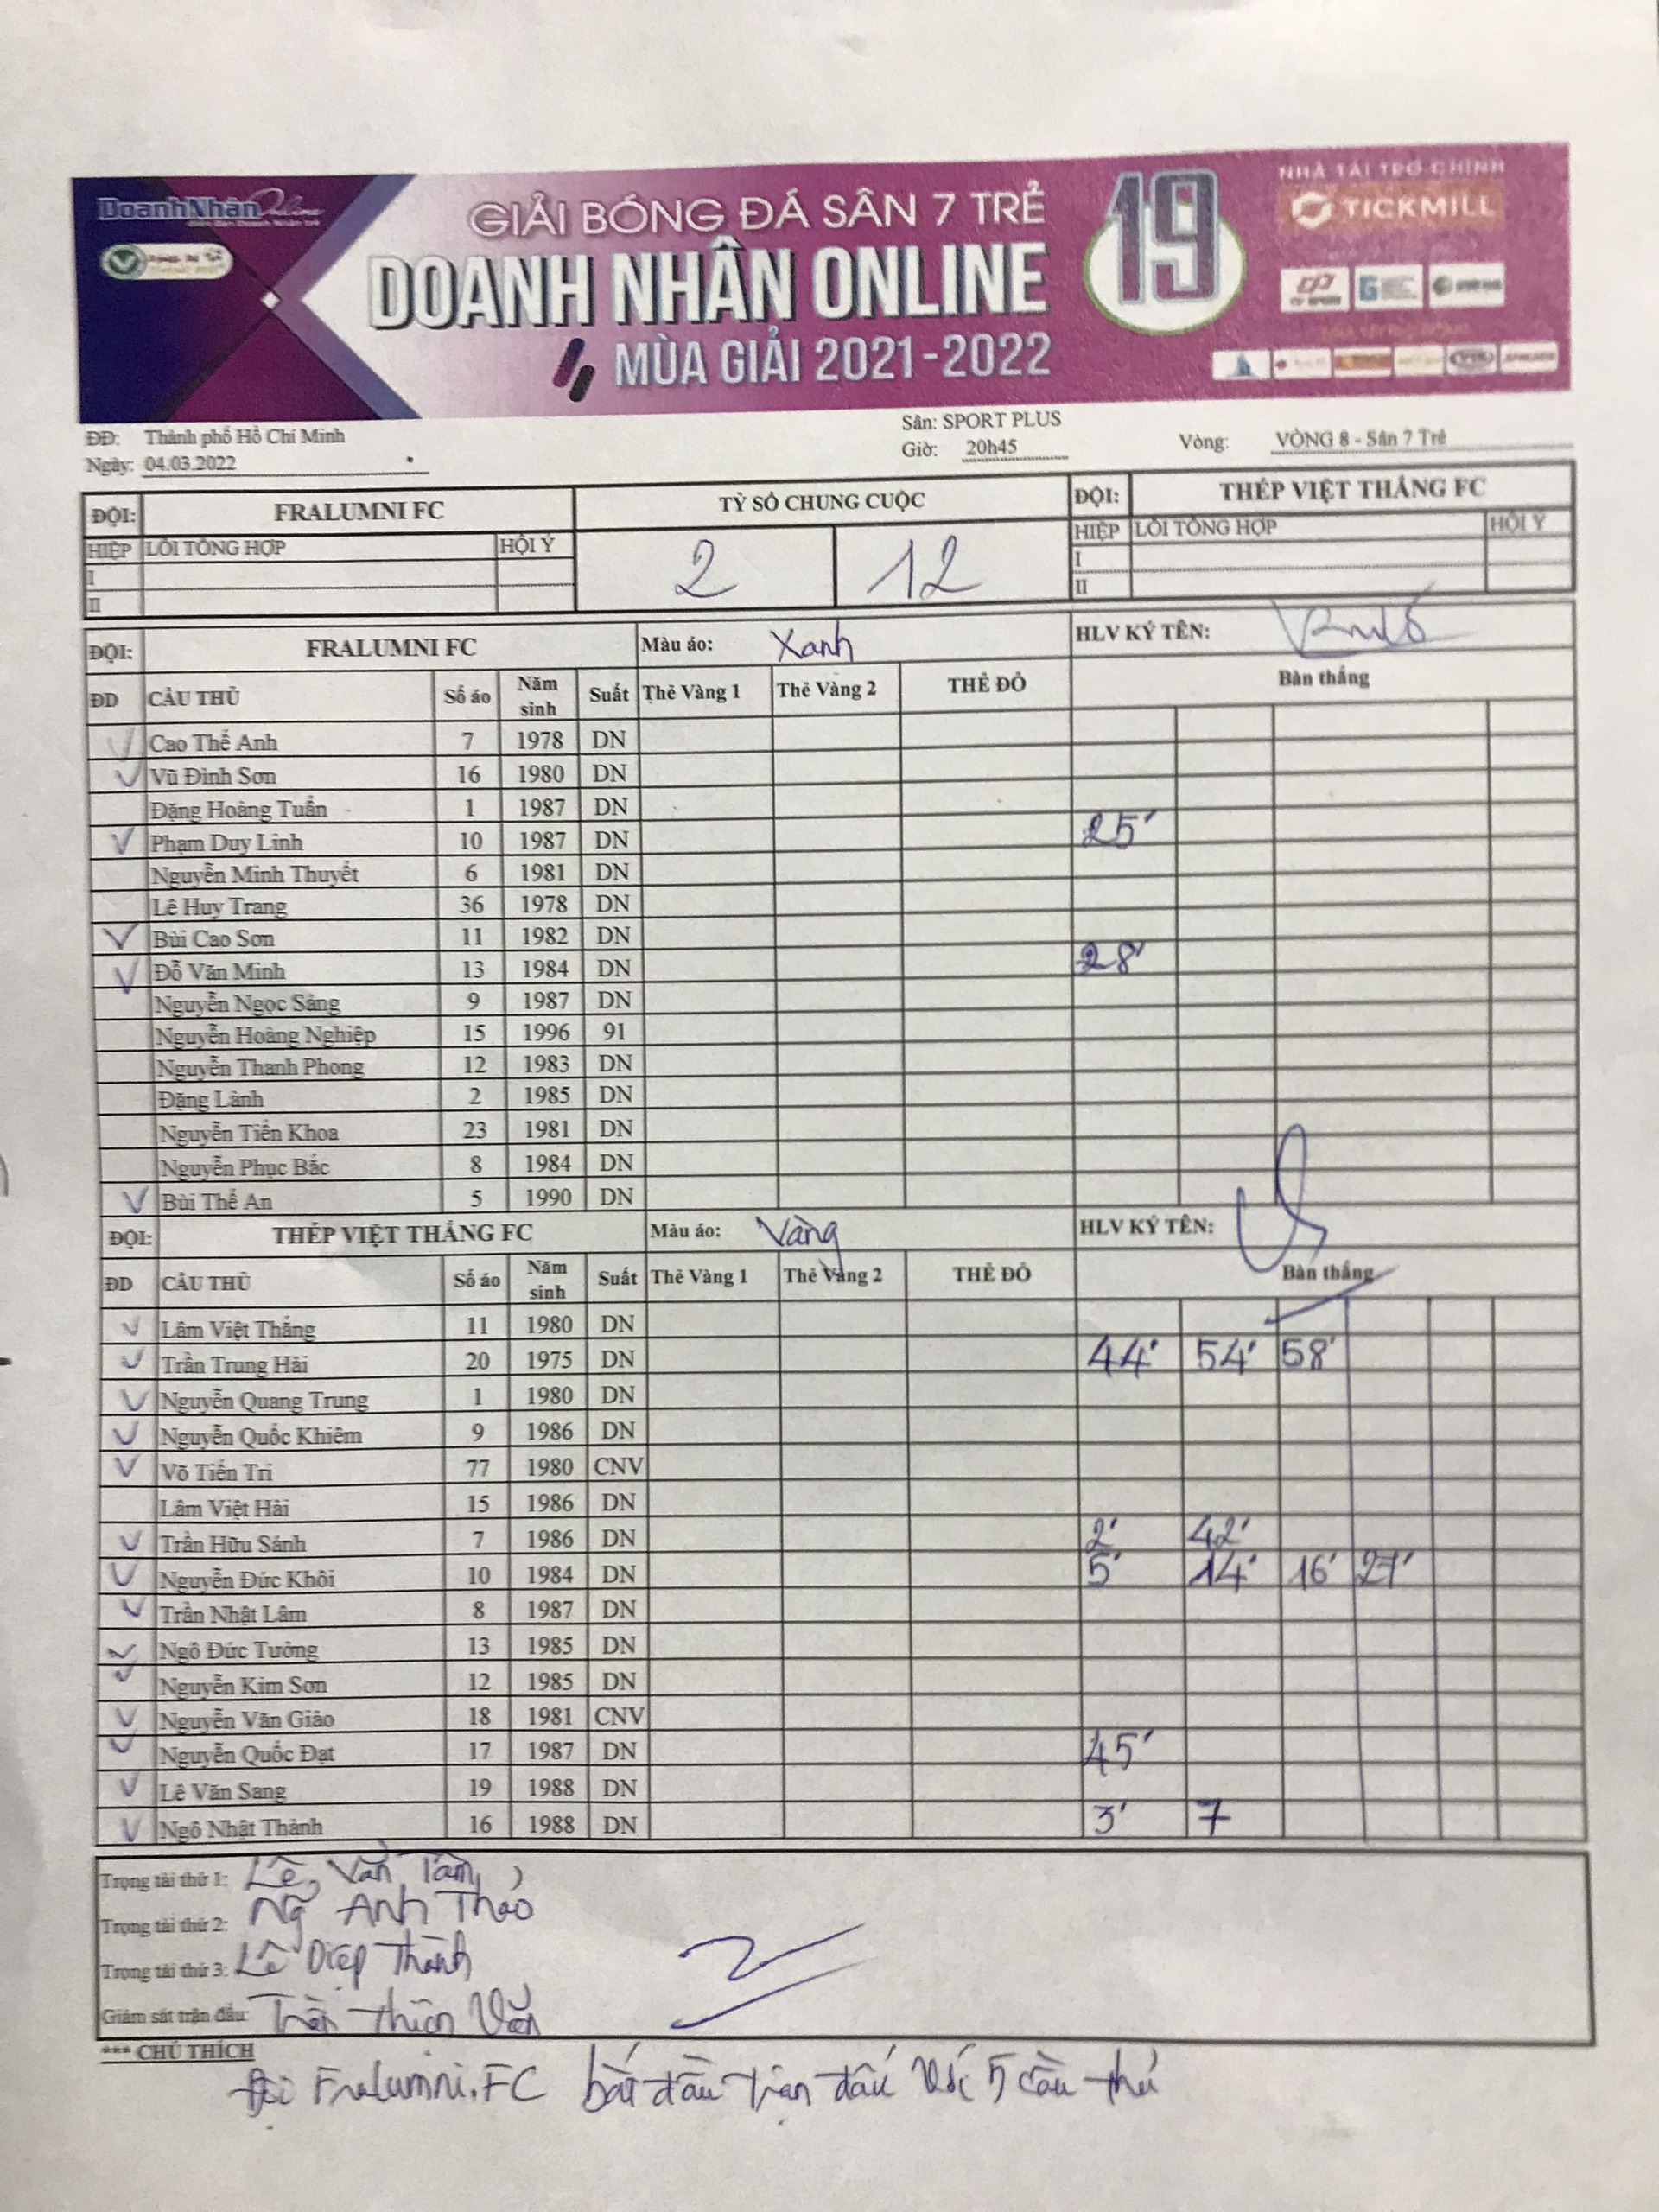 DoanhNhân Online
GIẢI BÓNG ĐÁ SÂN 7 TRẺ
DOANH NHÂN ONLINE
MÙA GIẢI 2021-2022
19
NHÀ TÀI TRỢ CHÍNH
TICKMILL
ĐĐ: Thành phố Hồ Chí Minh
Ngày: 04.03.2022
Sân: SPORT PLUS
Giờ: 20h45
Vòng: VÒNG 8 - Sân 7 Trẻ
ĐỘI: FRALUMNI FC TỶ SỐ CHUNG CUỘC ĐỘI: THÉP VIỆT THẮNG FC
HIỆP LỖI TỔNG HỢP HỘI Ý 2 12 HIỆP LỖI TỔNG HỢP HỘI Ý
I I
II II
ĐỘI: FRALUMNI FC Màu áo: Xanh HLV KÝ TÊN:
ĐD CẦU THỦ Số áo Năm sinh Suất Thẻ Vàng 1 Thẻ Vàng 2 THẺ ĐỎ Bàn thắng
Cao Thế Anh 7 1978 DN
Vũ Đình Sơn 16 1980 DN
Đặng Hoàng Tuấn 1 1987 DN
Phạm Duy Linh 10 1987 DN 25'
Nguyễn Minh Thuyết 6 1981 DN
Lê Huy Trang 36 1978 DN
Bùi Cao Sơn 11 1982 DN
Đỗ Văn Minh 13 1984 DN 28'
Nguyễn Ngọc Sáng 9 1987 DN
Nguyễn Hoàng Nghiệp 15 1996 91
Nguyễn Thanh Phong 12 1983 DN
Đặng Lành 2 1985 DN
Nguyễn Tiến Khoa 23 1981 DN
Nguyễn Phục Bắc 8 1984 DN
Bùi Thế An 5 1990 DN
ĐỘI: THÉP VIỆT THẮNG FC Màu áo: Vàng HLV KÝ TÊN:
ĐD CẦU THỦ Số áo Năm sinh Suất Thẻ Vàng 1 Thẻ Vàng 2 THẺ ĐỎ Bàn thắng
Lâm Việt Thắng 11 1980 DN
Trần Trung Hải 20 1975 DN 44' 54' 58'
Nguyễn Quang Trung 1 1980 DN
Nguyễn Quốc Khiêm 9 1986 DN
Võ Tiến Trí 77 1980 CNV
Lâm Việt Hải 15 1986 DN
Trần Hữu Sánh 7 1986 DN 2' 42'
Nguyễn Đức Khôi 10 1984 DN 5' 14' 16' 27'
Trần Nhật Lâm 8 1987 DN
Ngô Đức Tưởng 13 1985 DN
Nguyễn Kim Sơn 12 1985 DN
Nguyễn Văn Giáo 18 1981 CNV
Nguyễn Quốc Đạt 17 1987 DN 45'
Lê Văn Sang 19 1988 DN
Ngô Nhật Thành 16 1988 DN 3' 7
Trọng tài thứ 1: Lê Văn Tâm
Trọng tài thứ 2: Ng Anh Thảo
Trọng tài thứ 3: Lê Diệp Thành
Giám sát trận đấu: Trần Thiện Văn
*** CHÚ THÍCH
Đội Fralumni.FC bắt đầu trận đấu với 5 cầu thủ